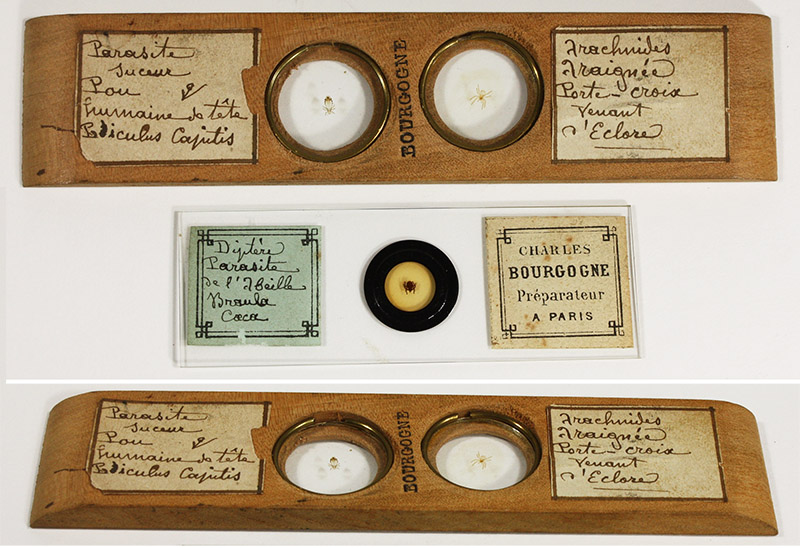 Parasite
suceur
Pou
humaine de tête
Pediculus Capitis
BOURGOGNE
Arachnides
Araignée
Porte-croix
Venant
d'Eclore
Diptère
Parasite
de l'Abeille
Braula
Cœca
CHARLES
BOURGOGNE
Préparateur
A PARIS
Parasite
suceur
Pou
humaine de tête
Pediculus Capitis
BOURGOGNE
Arachnides
Araignée
Porte-croix
Venant
d'Eclore